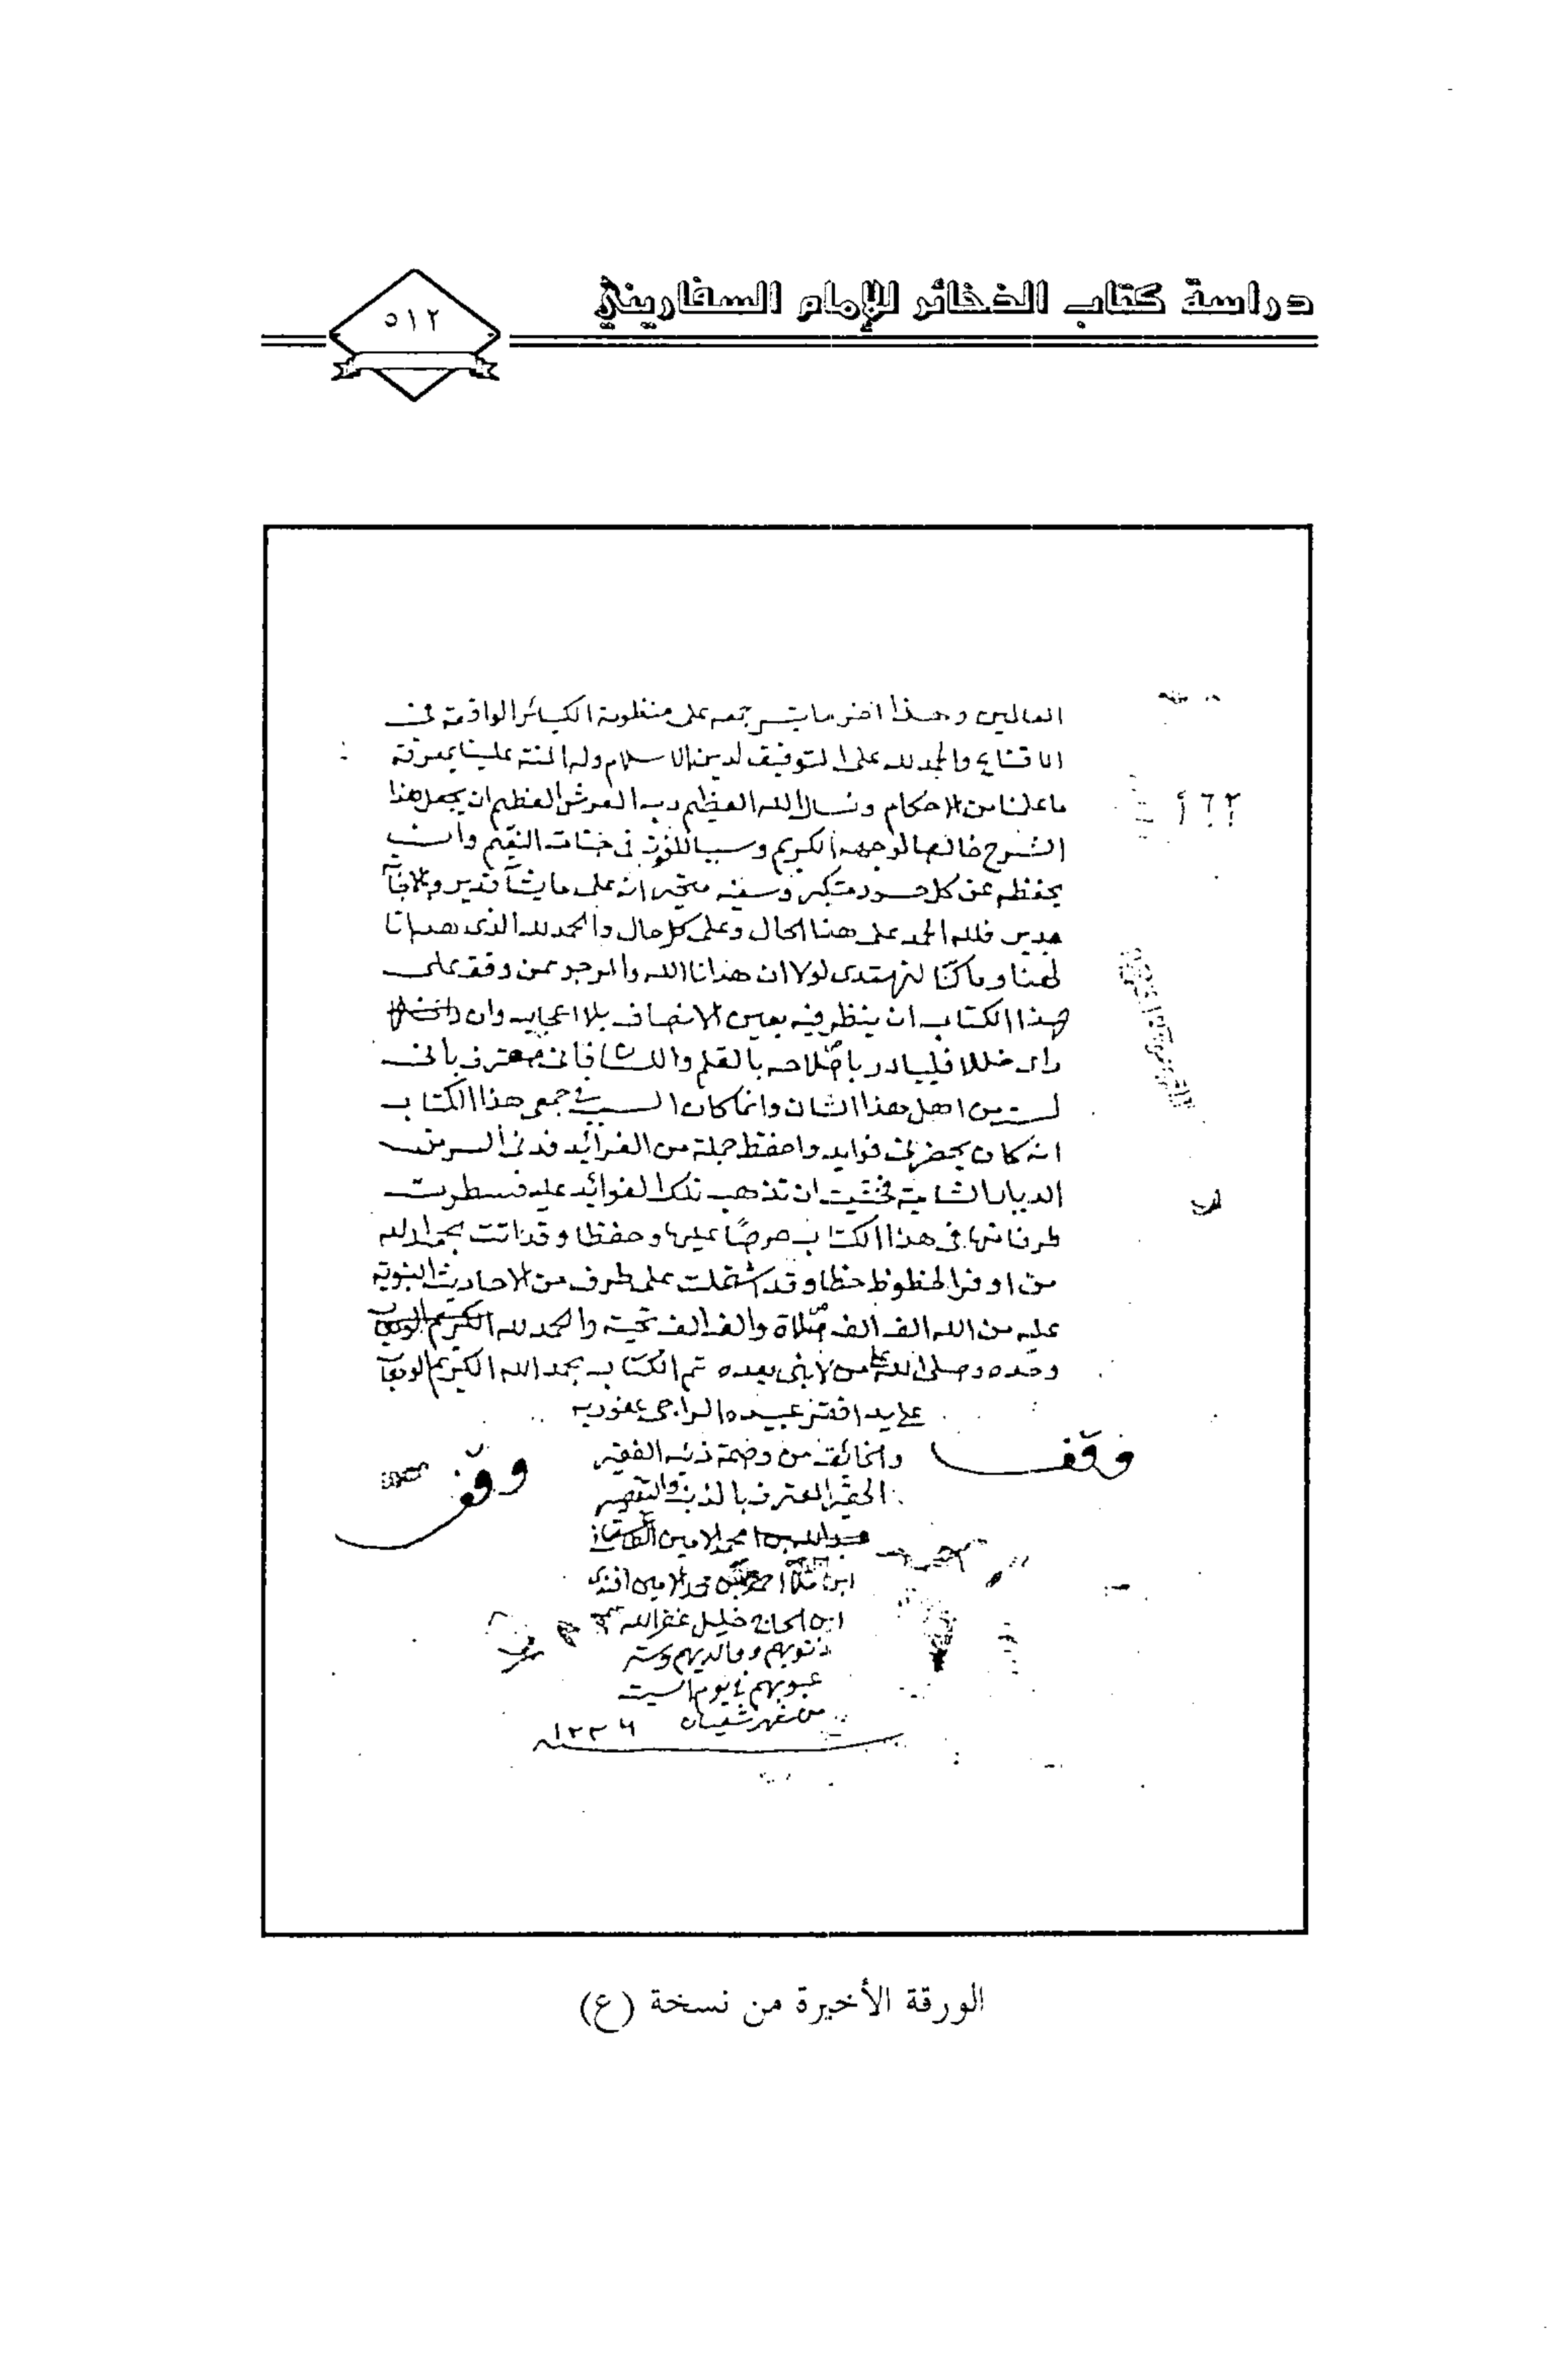 دراسة كتاب الذخائر للإمام السفاريني
٥١٢
العالمين وهذا اخر ما تيسر جمعه على منظومة الكبائر الواقعة في
الاقناع والحمد لله على التوفيق لدين الاسلام وله المنة علينا بمعرفة
ما علمنا من الاحكام ونسال الله العظيم رب العرش العظيم ان يجعل هذا
الشرح خالصا لوجهه الكريم وسببا للفوز في جنات النعيم وان
يحفظه عن كل حسود متكبر وسفيه متحير انه على ما يشآ قدير وبالاجابة
جدير فلله الحمد على هذا الحال وعلى كل حال والحمد لله الذي هدانا
لهذا وما كنا لنهتدى لولا ان هدانا الله والمرجو ممن وقف على
هذا الكتاب ان ينظر فيه بعين الانصاف بلا اعجاب وان
راى خللا فليبادر باصلاحه بالقلم واللسان فاني معترف باني
لست من اهل هذا الشان وانما كان السبب في جمعي هذا الكتاب
انه كان يحضرني فوايد واحفظ جملة من الفرائد
الديار الشامية فخشيت ان تذهب تلك الفوائد عليه فسطرت
طرفا منها في هذا الكتاب حرصًا عليها وحفظا وقد اتت بحمد الله
من اوفر الحظوظ حظا وقد اشتملت على طرف من الاحاديث النبوية
عليه من الله الف الف صلاة والف الف تحية والحمد لله
وحده وصلى الله على من لا نبي بعده تم الكتاب بحمد الله الكريم الوهاب
على يد افقر عبيده الراجى عفو ربه
والخائف من وصمة ذنبه الفقير
الحقير المعترف بالذنب والتقصير
ابن احمد بن محمد الامين افندى
ابن الحاج خليل غفر الله
ذنوبهم ووالديهم وستر
عيوبهم في يوم السبت
من شهر شعبان ١٢٢٦
وقف
وقف
١٦٢
الورقة الأخيرة من نسخة (ع)